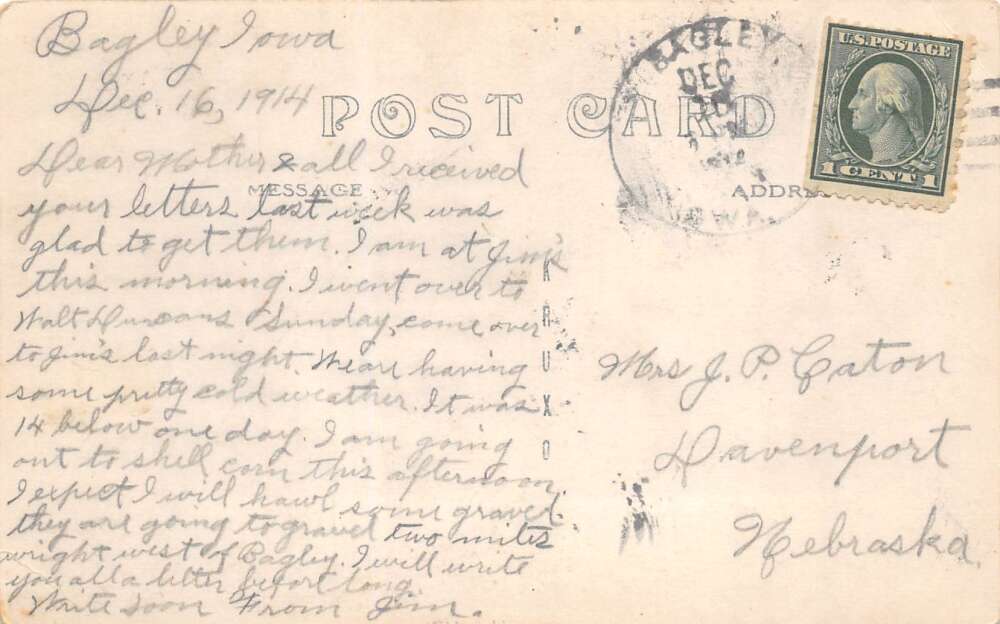 Bagley Iowa
Dec. 16, 1914
POST CARD
Dear Mother & all I received
MESSAGE
your letters last week was
glad to get them. I am at Jim's
this morning. I went over to
Walt Duncans Sunday, come over
to Jim's last night. We are having
some pretty cold weather. It was
14 below one day. I am going
out to shell corn this afternoon.
I expect I will hawl some gravel.
they are going to gravel two miles
wright west of Bagley. I will write
you all a letter befort long
Write soon From Jim.
KRUXO
BAGLEY
DEC
IOWA
U.S. POSTAGE
1 CENT 1
ADDRE
Mrs J. P. Caton
Davenport
Nebraska.